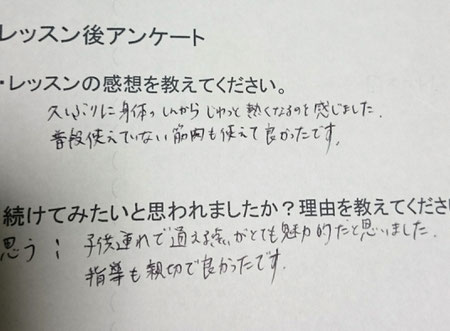 レッスン後アンケート
・レッスンの感想を教えてください。
久しぶりに身体のしんからじわっと熱くなるのを感じました。
普段使えていない筋肉も使えて良かったです。
続けてみたいと思われましたか？理由を教えてくださ
思う： 子供連れで通える事がとても魅力的だと思いました。
指導も親切で良かったです。